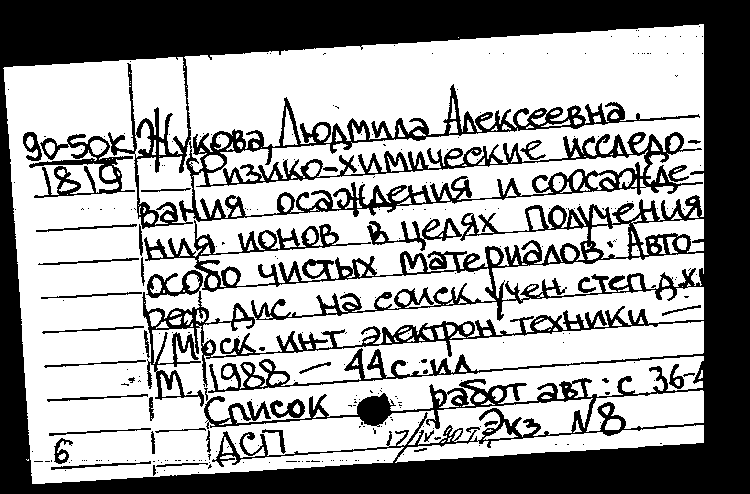 90-50К Жукова, Людмила Алексеевна.
1819 Физико-химические исследо-
вания осаждения и соосажде-
ния ионов в целях получения
особо чистых материалов: Авто-
реф. дис. на соиск. учен. степ. д.х.
/Моск. ин-т электрон. техники. —
М., 1988. — 44 с.: ил.
Список работ авт.: с. 36-4
6 ДСП. 17/IV-90 Экз. N8.